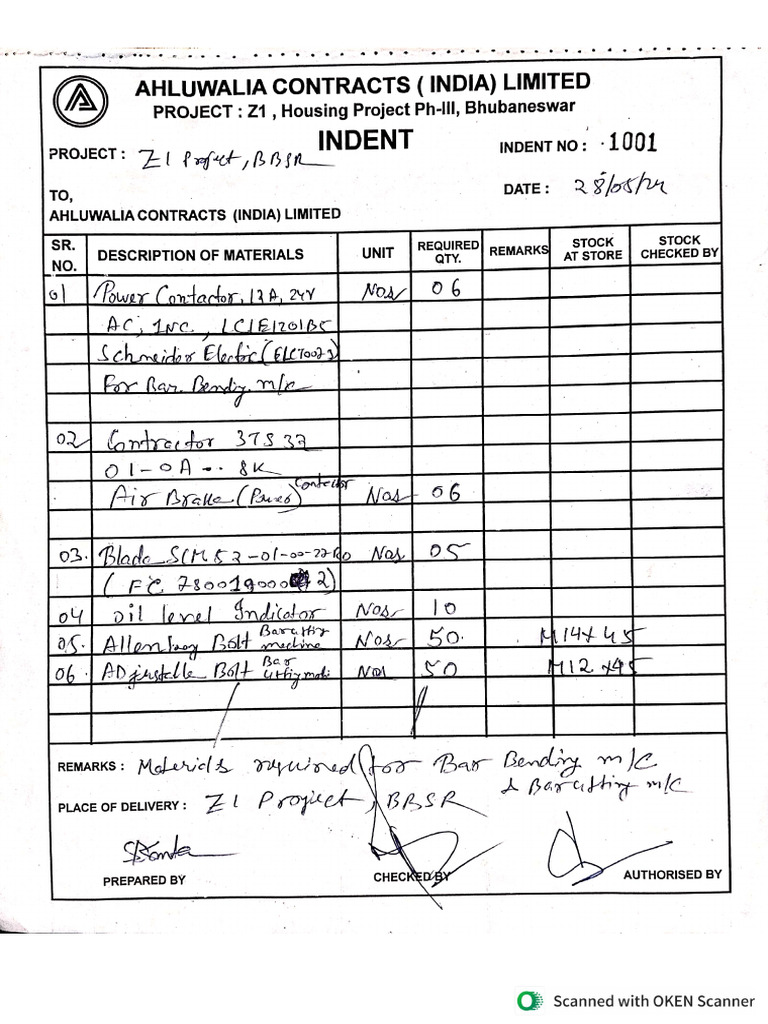 AHLUWALIA CONTRACTS ( INDIA) LIMITED
PROJECT : Z1 , Housing Project Ph-III, Bhubaneswar
INDENT
INDENT NO : 1001
PROJECT : Z1 Project, BBSR
DATE : 28/05/24
TO,
AHLUWALIA CONTRACTS (INDIA) LIMITED
SR. NO. DESCRIPTION OF MATERIALS UNIT REQUIRED QTY. REMARKS STOCK AT STORE STOCK CHECKED BY
01 Power Contactor, 12A, 24V Nos 06
AC, 1NC, LC1E1201B5
Schneider Electric (ELCT0023)
For Bar Bending m/c
02 Contractor 3TS 32
01-0A-- 8K
Air Brake (Power) Contector Nos 06
03. Blade SCM 52-01-00-22 Nos 05
(FC 7800190000 2)
04 Oil level Indicator Nos 10
05. Bolt Bar cutting machine Nos 50. M14x45
06. ADjustable Bolt Bar Nos 50 M12x45
REMARKS : Materials required for Bar Bending m/c
& Bar cutting m/c
PLACE OF DELIVERY : Z1 Project, BBSR
PREPARED BY CHECKED BY AUTHORISED BY
Scanned with OKEN Scanner